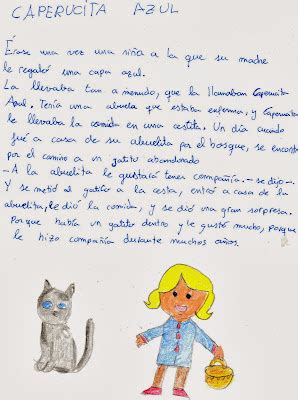 CAPERUCITA AZUL
Érase una vez una niña a la que su madre
le regaló una capa azul.
La llevaba tan a menudo, que la llamaban Caperucita
Azul. Tenía una abuela que estaba enferma, y Caperucita
le llevaba la comida en una cestita. Un día cuando
fué a casa de su abuelita por el bosque, se encontró
por el camino a un gatito abandonado
-A la abuelita le gustará tener compañía.- se dijo-.
Y se metió al gatito a la cesta, entró a casa de la
abuelita, le dió la comida, y se dió una gran sorpresa.
Porque había un gatito dentro y le gustó mucho, porque
le hizo compañía durante muchos años.